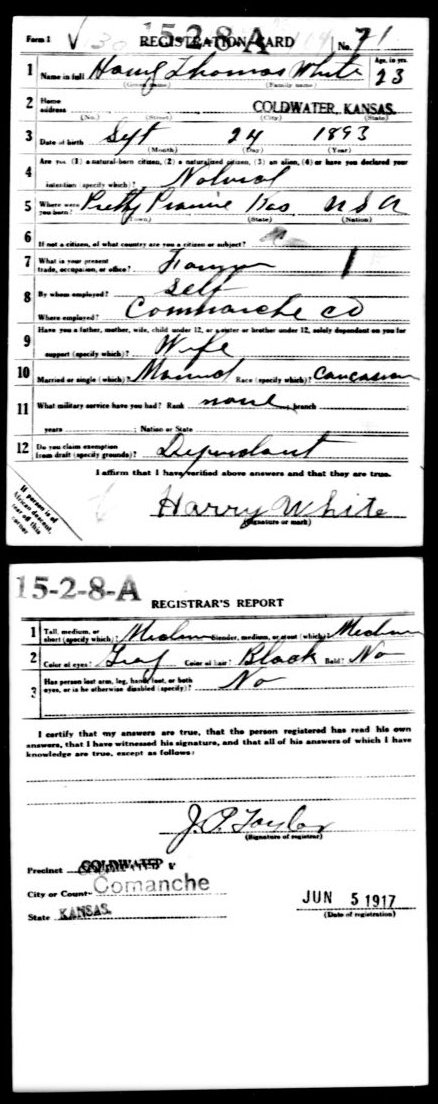 15-2-8-A
Form 1 REGISTRATION CARD No. 71
1 Name in full Harry Thomas White Age, in yrs. 23
(Given name) (Family name)
2 Home address COLDWATER, KANSAS.
(No.) (Street) (City) (State)
3 Date of birth Sept 24 1893
(Month) (Day) (Year)
4 Are you (1) a natural-born citizen, (2) a naturalized citizen, (3) an alien, (4) or have you declared your
intention (specify which)? Natural
5 Where were you born? Pretty Prairie Kas U S A
(Town) (State) (Nation)
6 If not a citizen, of what country are you a citizen or subject?
7 What is your present trade, occupation, or office? Farmer
8 By whom employed? Self
Where employed? Commanche Co
9 Have you a father, mother, wife, child under 12, or a sister or brother under 12, solely dependent on you for
support (specify which)? Wife
10 Married or single (which)? Married Race (specify which)? Caucasian
11 What military service have you had? Rank none ; branch
years ; Nation or State
12 Do you claim exemption from draft (specify grounds)? Dependant
I affirm that I have verified above answers and that they are true.
Harry White
(Signature or mark)
If person is of
African descent,
tear off this
corner
15-2-8-A
REGISTRAR'S REPORT
1 Tall, medium, or short (specify which)? Medium Slender, medium, or stout (which)? Medium
2 Color of eyes? Gray Color of hair? Black Bald? No
3 Has person lost arm, leg, hand, foot, or both
eyes, or is he otherwise disabled (specify)? No
I certify that my answers are true, that the person registered has read his own
answers, that I have witnessed his signature, and that all of his answers of which I have
knowledge are true, except as follows:
J. P. Taylor
(Signature of registrar)
Precinct COLDWATER
City or County Comanche
State KANSAS.
JUN 5 1917
(Date of registration)